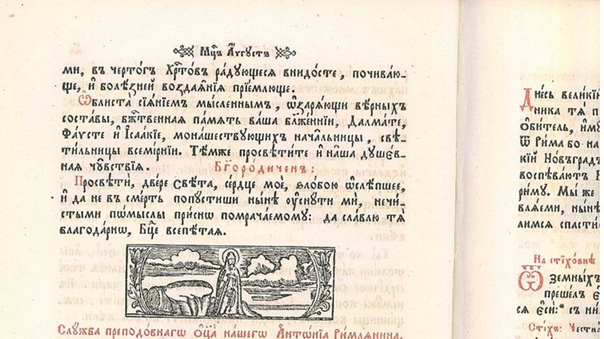 Мц҃ъ А҆́ѵгꙋстъ
ми, въ черто́гъ Хрⷭ҇то́въ ра́дꙋющеся внидо́сте, почива́ю-
ще, и҆ болѣ́зней воздая̑нїѧ прїе́млюще.
Ѡ҆блиста̀ сїѧ́нїемъ мы́сленнымъ, ѡ҆зарѧ́ющи вѣ́рныхъ
соста́вы, бж҃е́ственнаѧ па́мѧть ва́ша бл҃же́ннїи, Далма́те,
Фа́ѵсте и҆ І҆саа́кїе, мона́шествꙋющихъ нача́льницы, свѣ-
ти́льницы всемі́рнїи. Тѣ́мже просвѣти́те и҆ на́ша дꙋшє́в-
наѧ чꙋ̑вствїѧ. Бг҃оро́диченъ:
Просвѣтѝ, две́ре Свѣ́та, се́рдце моѐ, ѕло́бою ѡ҆слѣ́пшее,
и҆ да не въ сме́рть попꙋ́стиши ны́нѣ ᲂу҆снꙋ́ти мѝ, нечи́-
стыми по́мыслы при́снѡ помрача́емомꙋ: да сла́влю тѧ̀
благода́рнѡ, Бц҃е всепѣ́таѧ.
Слꙋ́жба преподо́бнагѡ ѻ҆ц҃а̀ на́шегѡ А҆нтѡ́нїѧ Ри́млѧнина.
Дне́сь вели́кїй
дника тѧ п
ѻ҆би́тель, и҆м
ѿ Ри́ма бо на
кїй Новъгра́д
воспѣва́ютъ
ри́мꙋ. Мы́ же
ва́ѧеми, ны́нѣ
лимсѧ спасти́с
На стїхо́внѣ
Ѿ земны́хъ
преше́лъ є҆
сѧ є҆сѝ: съ ни
Сті́хъ: Че́стн